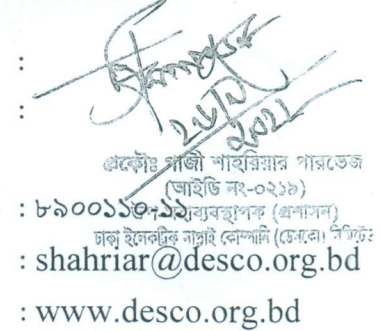 :
:
প্রকৌঃ গাজী শাহরিয়ার পারভেজ
(আইডি নং-০২১৯)
: ৮৯০০১১০-১১
ব্যবস্থাপক (প্রশাসন)
ঢাকা ইলেকট্রিক সাপ্লাই কোম্পানি (ডেসকো) লিমিটেড
: shahriar@desco.org.bd
: www.desco.org.bd